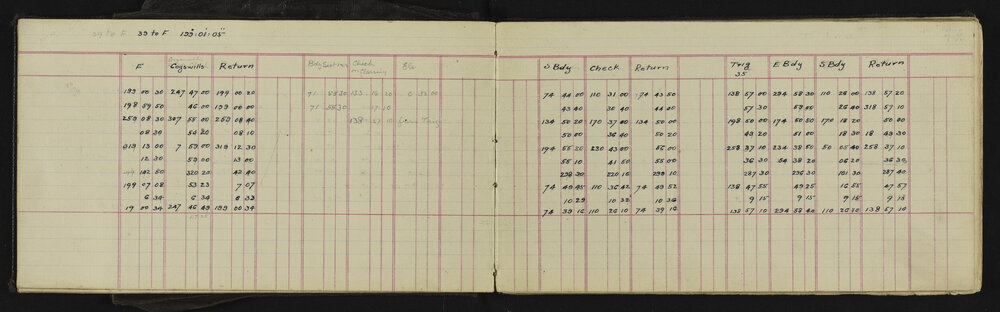 39 to F 39 to F 199·01·05
F Cogswills Return Bdy Section Check Bla
Closing
199 00 30 247 47 00 199 00 20 71 58 30 133 16 20 0 32 00
198 59 50 46 00 199 00 00 71 58 30 17 10
259 08 30 307 55 00 259 08 40 138 27 10
08 30 54 20 08 10
319 13 00 7 59 00 319 12 30
12 30 59 00 13 00
102 50 320 20 42 40
199 07 08 53 23 7 07
6 34 6 34 6 33
19 00 34 247 46 49 199 00 34
S Bdy Check Return Trig E Bdy S Bdy Return
35
74 44 00 110 31 00 74 43 50 138 57 00 294 58 30 110 26 00 138 57 20
43 40 30 40 44 00 57 30 59 00 26 40 318 57 10
134 50 20 170 37 00 134 50 00 198 50 00 174 50 50 170 18 20 50 00
50 00 36 40 50 20 49 20 51 00 18 30 18 49 30
194 55 20 230 43 00 55 00 258 37 10 234 38 50 50 05 40 258 37 10
55 10 41 50 55 00 36 30 54 38 20 06 20 36 30
298 30 220 10 298 10 287 30 296 30 101 30 287 40
74 49 45 110 36 42 74 49 52 138 47 55 49 25 16 55 47 57
10 29 10 32 10 36 9 15 9 15 9 15 9 13
74 39 16 110 26 10 74 39 16 138 57 10 294 58 40 110 26 20 138 57 10